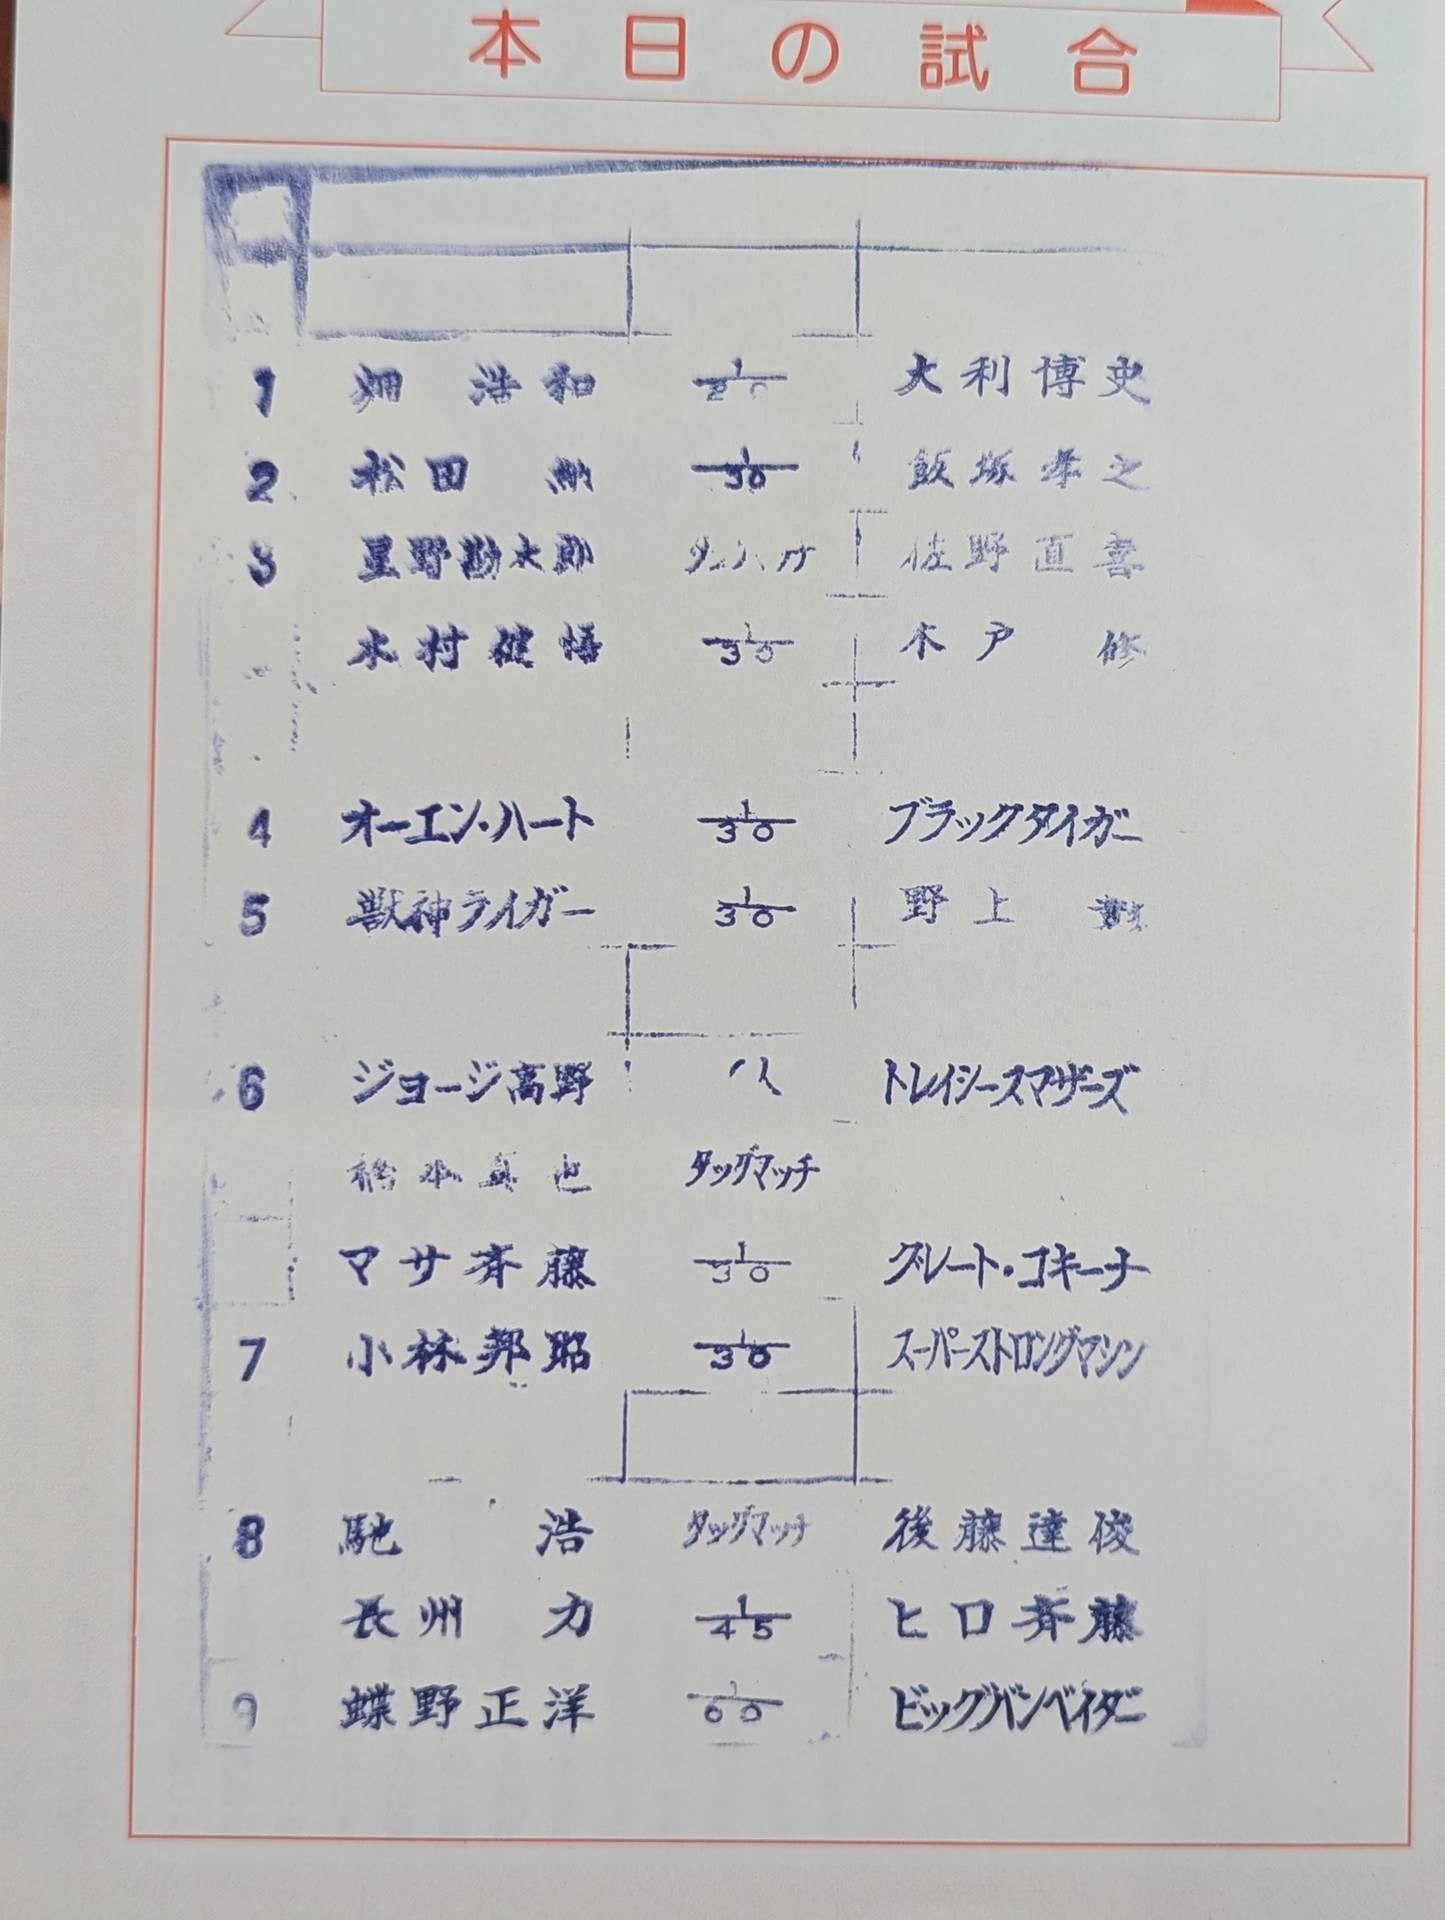 本日の試合
1 畑 浩和 1/20 大利博史
2 松田 納 1/30 飯塚孝之
3 星野勘太郎 佐野直喜
木村健悟 1/30 木戸 修
4 オーエン・ハート 1/30 ブラックタイガー
5 獣神ライガー 1/30 野上 彰
6 ジョージ高野 トレイシースマザーズ
橋本真也 タッグマッチ
マサ斉藤 1/30 グレート・コキーナ
7 小林邦昭 1/30 スーパーストロングマシン
8 馳 浩 タッグマッチ 後藤達俊
長州 力 1/45 ヒロ斉藤
9 蝶野正洋 1/60 ビッグバンベイダー